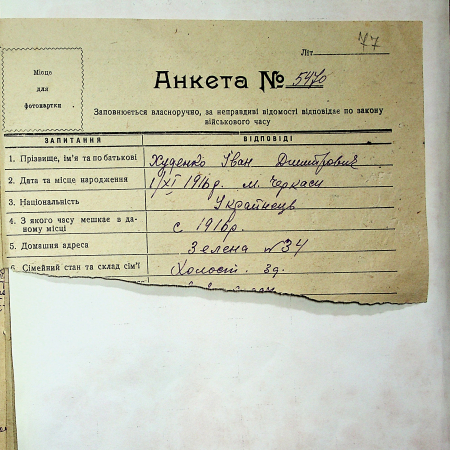 77
Літ
Місце
для
фотокартки
Анкета № 5470
Заповнюється власноручно, за неправдиві відомості відповідає по закону
військового часу
ЗАПИТАННЯ ВІДПОВІДІ
1. Прізвище, ім'я та по батькові Худенко Іван Дмитрович
2. Дата та місце народження 1/XI 1916 р. м. Черкаси
3. Національність Українець
4. З якого часу мешкає в да-
ному місці с 1916 р.
5. Домашня адреса Зелена № 34
6. Сімейний стан та склад сім'ї Холост.